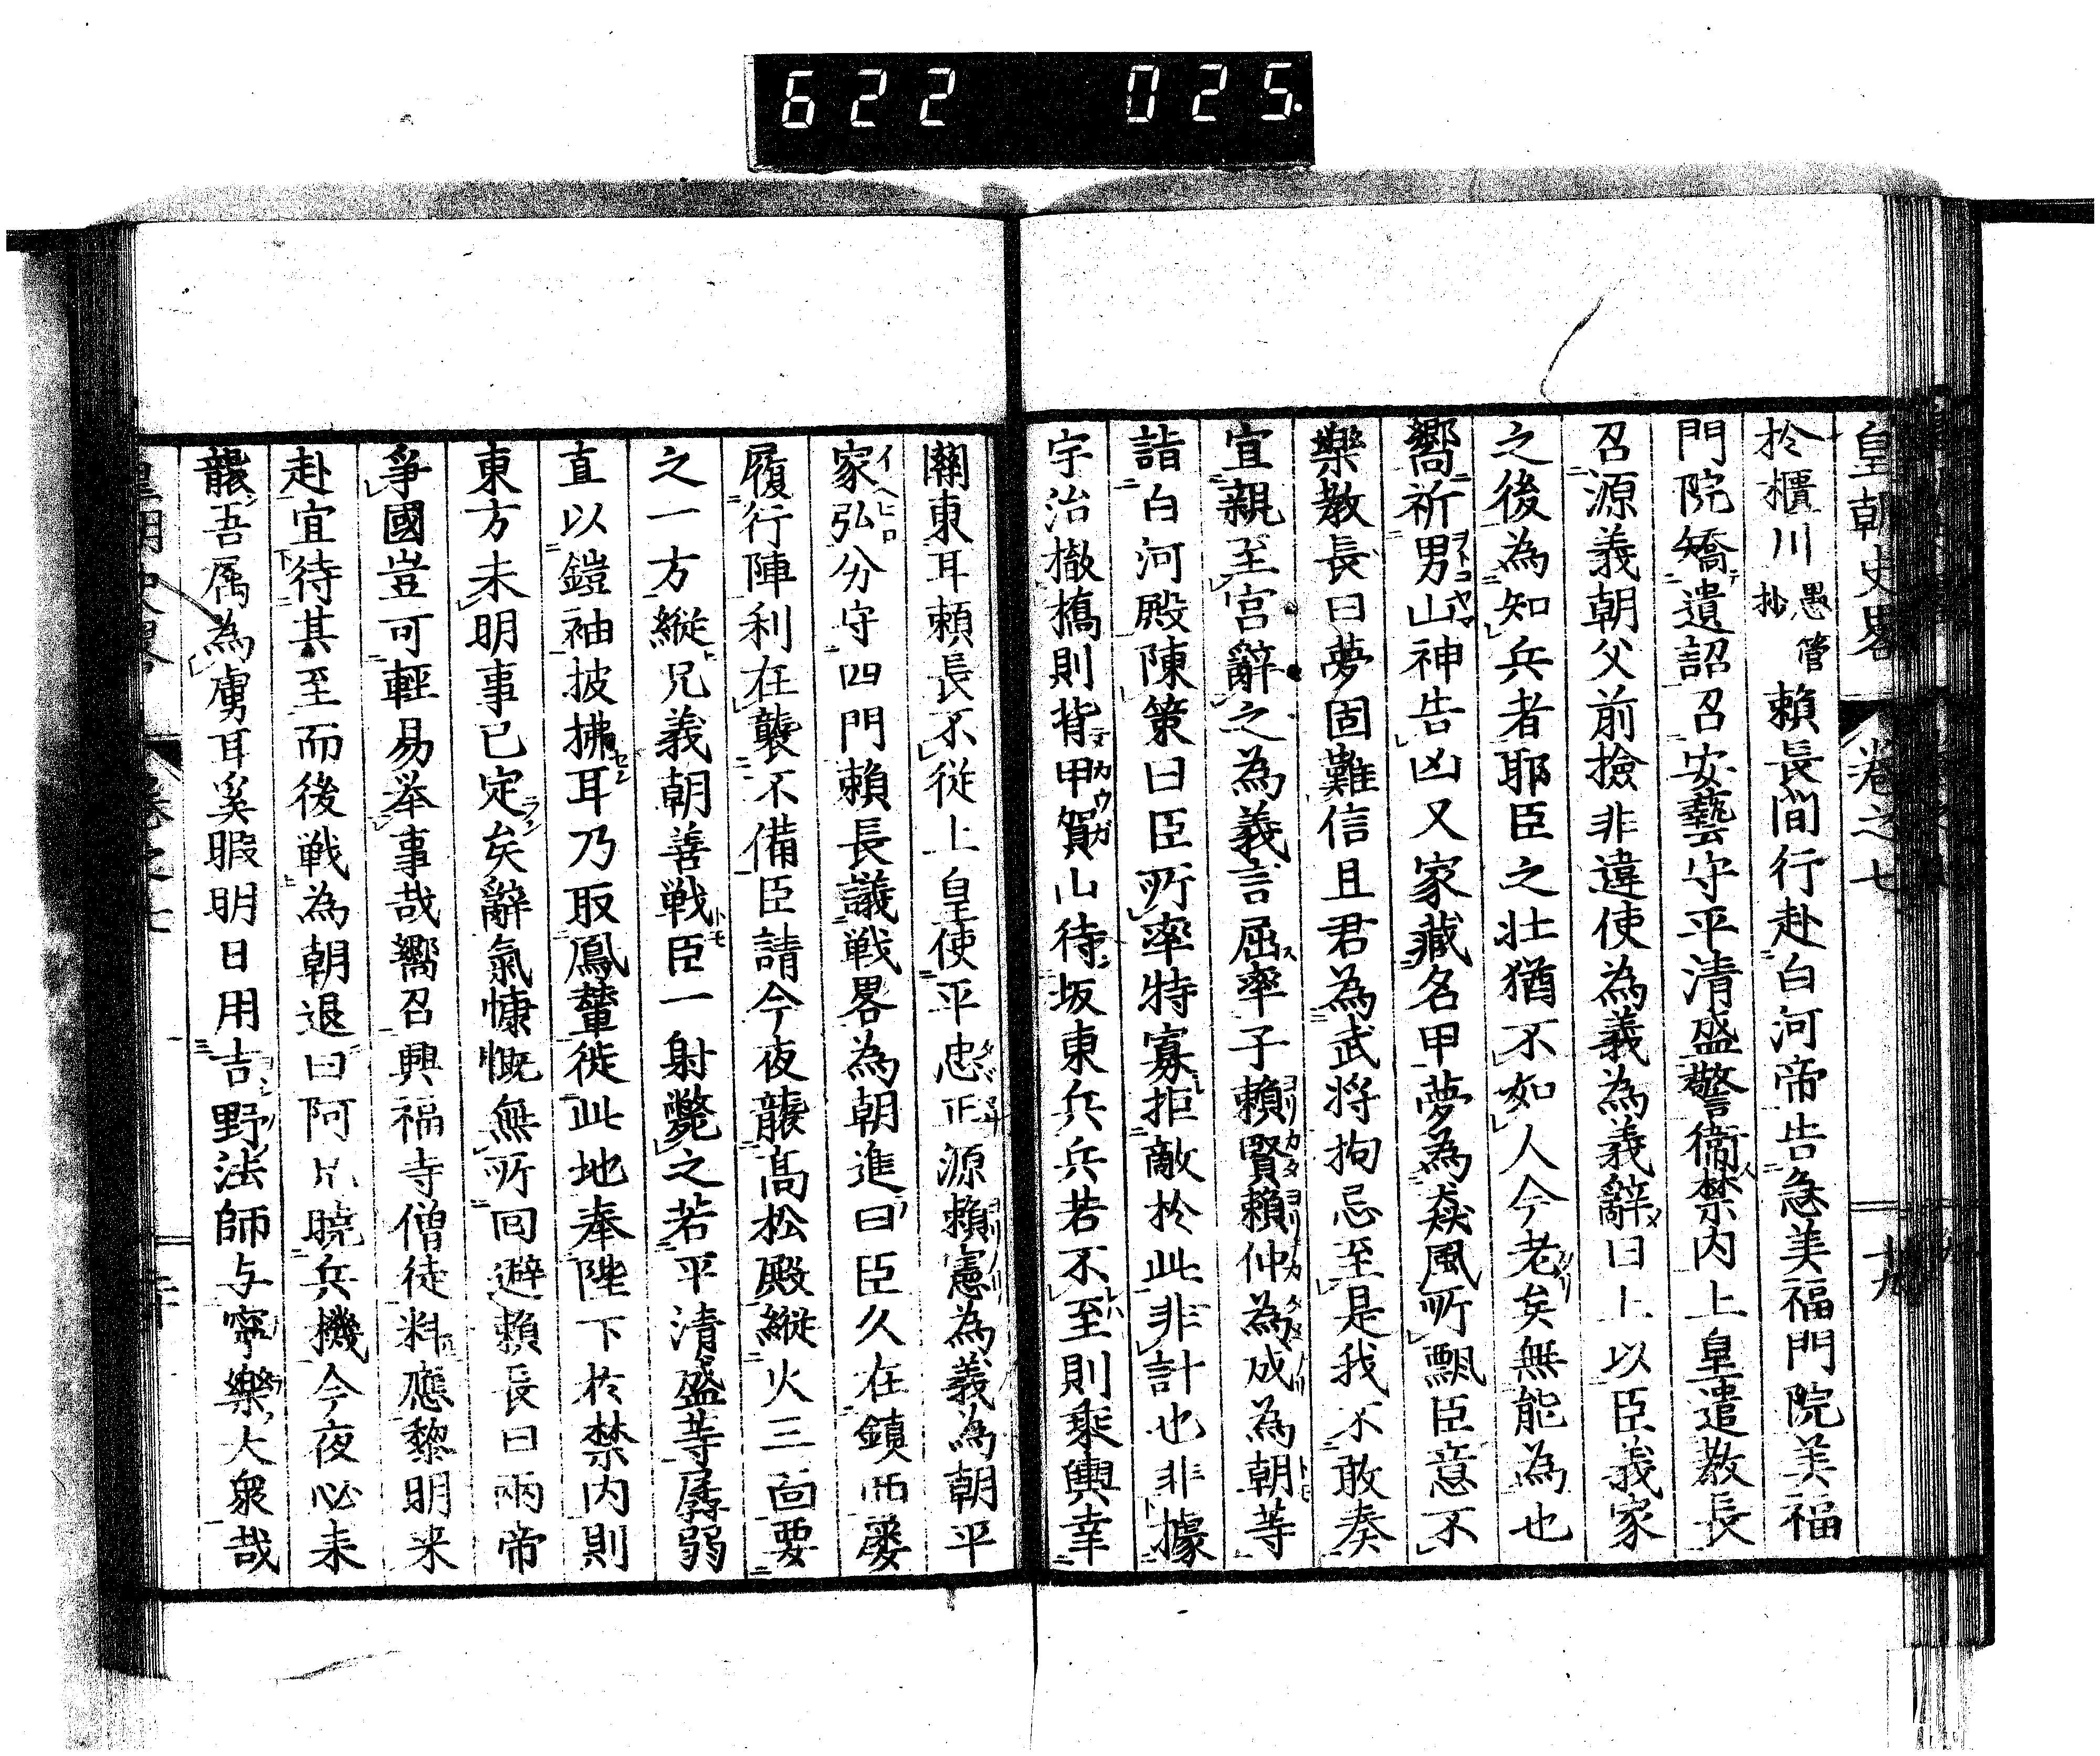 622 025.
皇朝史畧 卷之七 十九
於櫃川愚管抄賴長間行赴白河帝告急美福門院美福
門院矯遺詔召安藝守平清盛警衛禁内上皇遣敎長
召源義朝父前撿非違使為義為義辭曰上以臣義家
之後為知兵者耶臣之壮猶不如人今老矣無能為也
嚮祈男山神告凶又家藏名甲夢為猋風所飄臣意不
樂敎長曰夢固難信且君為武將拘忌至是我不敢奏
宜親至宮辭之為義言屈率子賴賢賴仲為成為朝等
詣白河殿陳策曰臣所率特寡拒敵於此非計也非據
宇治撤橋則背甲賀山待坂東兵兵若不至則乘輿幸
關東耳賴長不從上皇使平忠正源賴憲為義為朝平
家弘分守四門賴長議戦畧為朝進曰臣久在鎮西屡
履行陣利在襲不備臣請今夜襲高松殿縱火三面要
之一方縱兄義朝善戦臣一射斃之若平清盛等孱弱
直以鎧袖披拂耳乃取鳳輦徙此地奉陛下於禁内則
東方未明事已定矣辭氣慷慨無所回避賴長曰兩帝
爭國豈可輕易举事哉嚮召興福寺僧徒料應黎明来
赴宜待其至而後戦為朝退曰阿兄暁兵機今夜必来
襲吾属為虜耳奚暇明日用吉野法師与寧樂大衆哉
卷之七